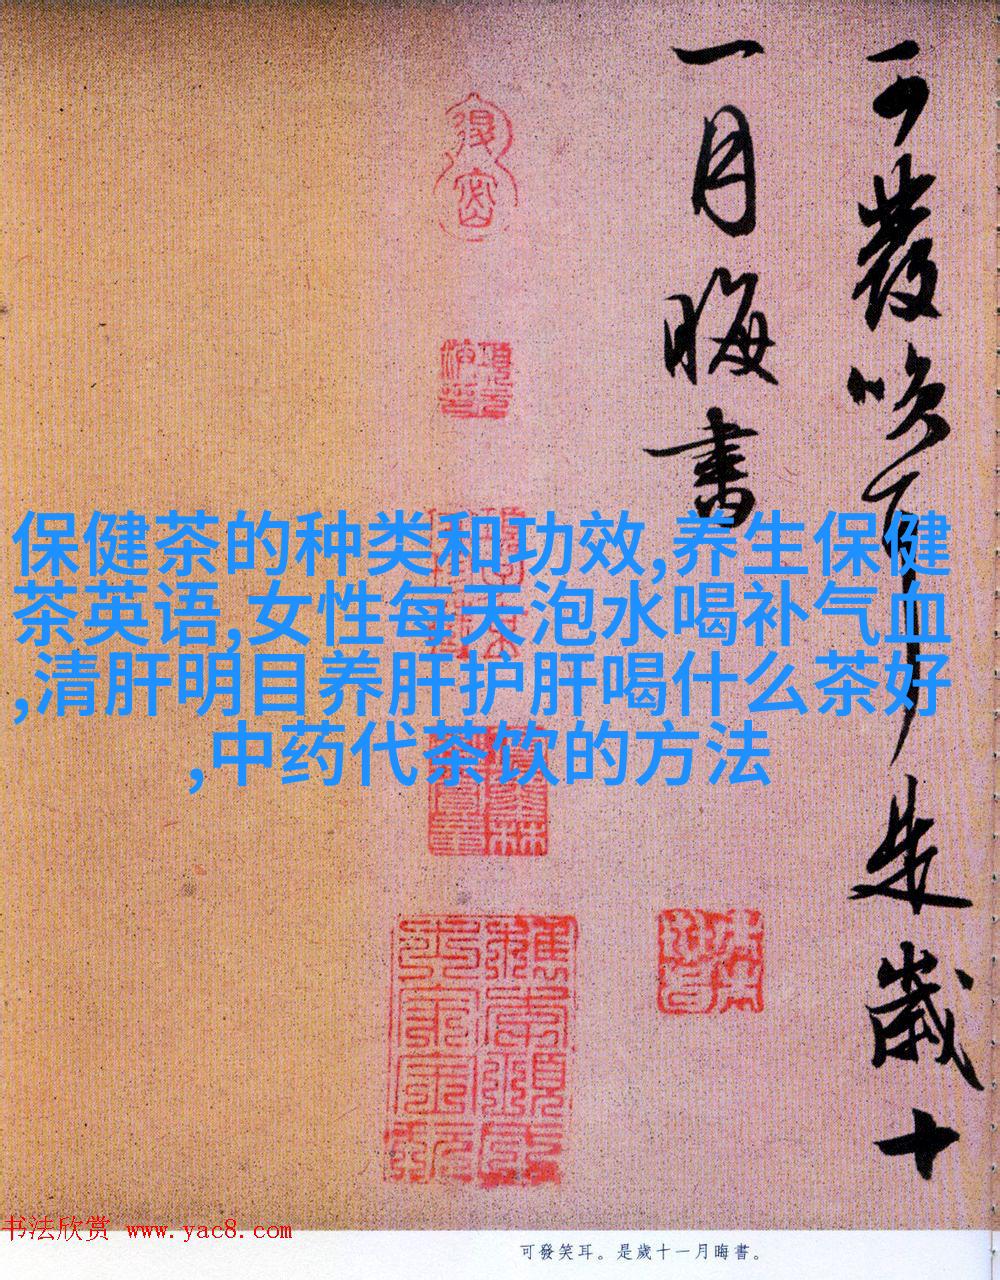 可發笑耳是歲十
一月晦書
保健茶的种类和功效,养生保健
茶英语,女性每天泡水喝补气血
,清肝明目养肝护肝喝什么茶好
,中药代茶饮的方法
书法欣赏 www.yac8.com
可發笑耳。是歲十一月晦書。